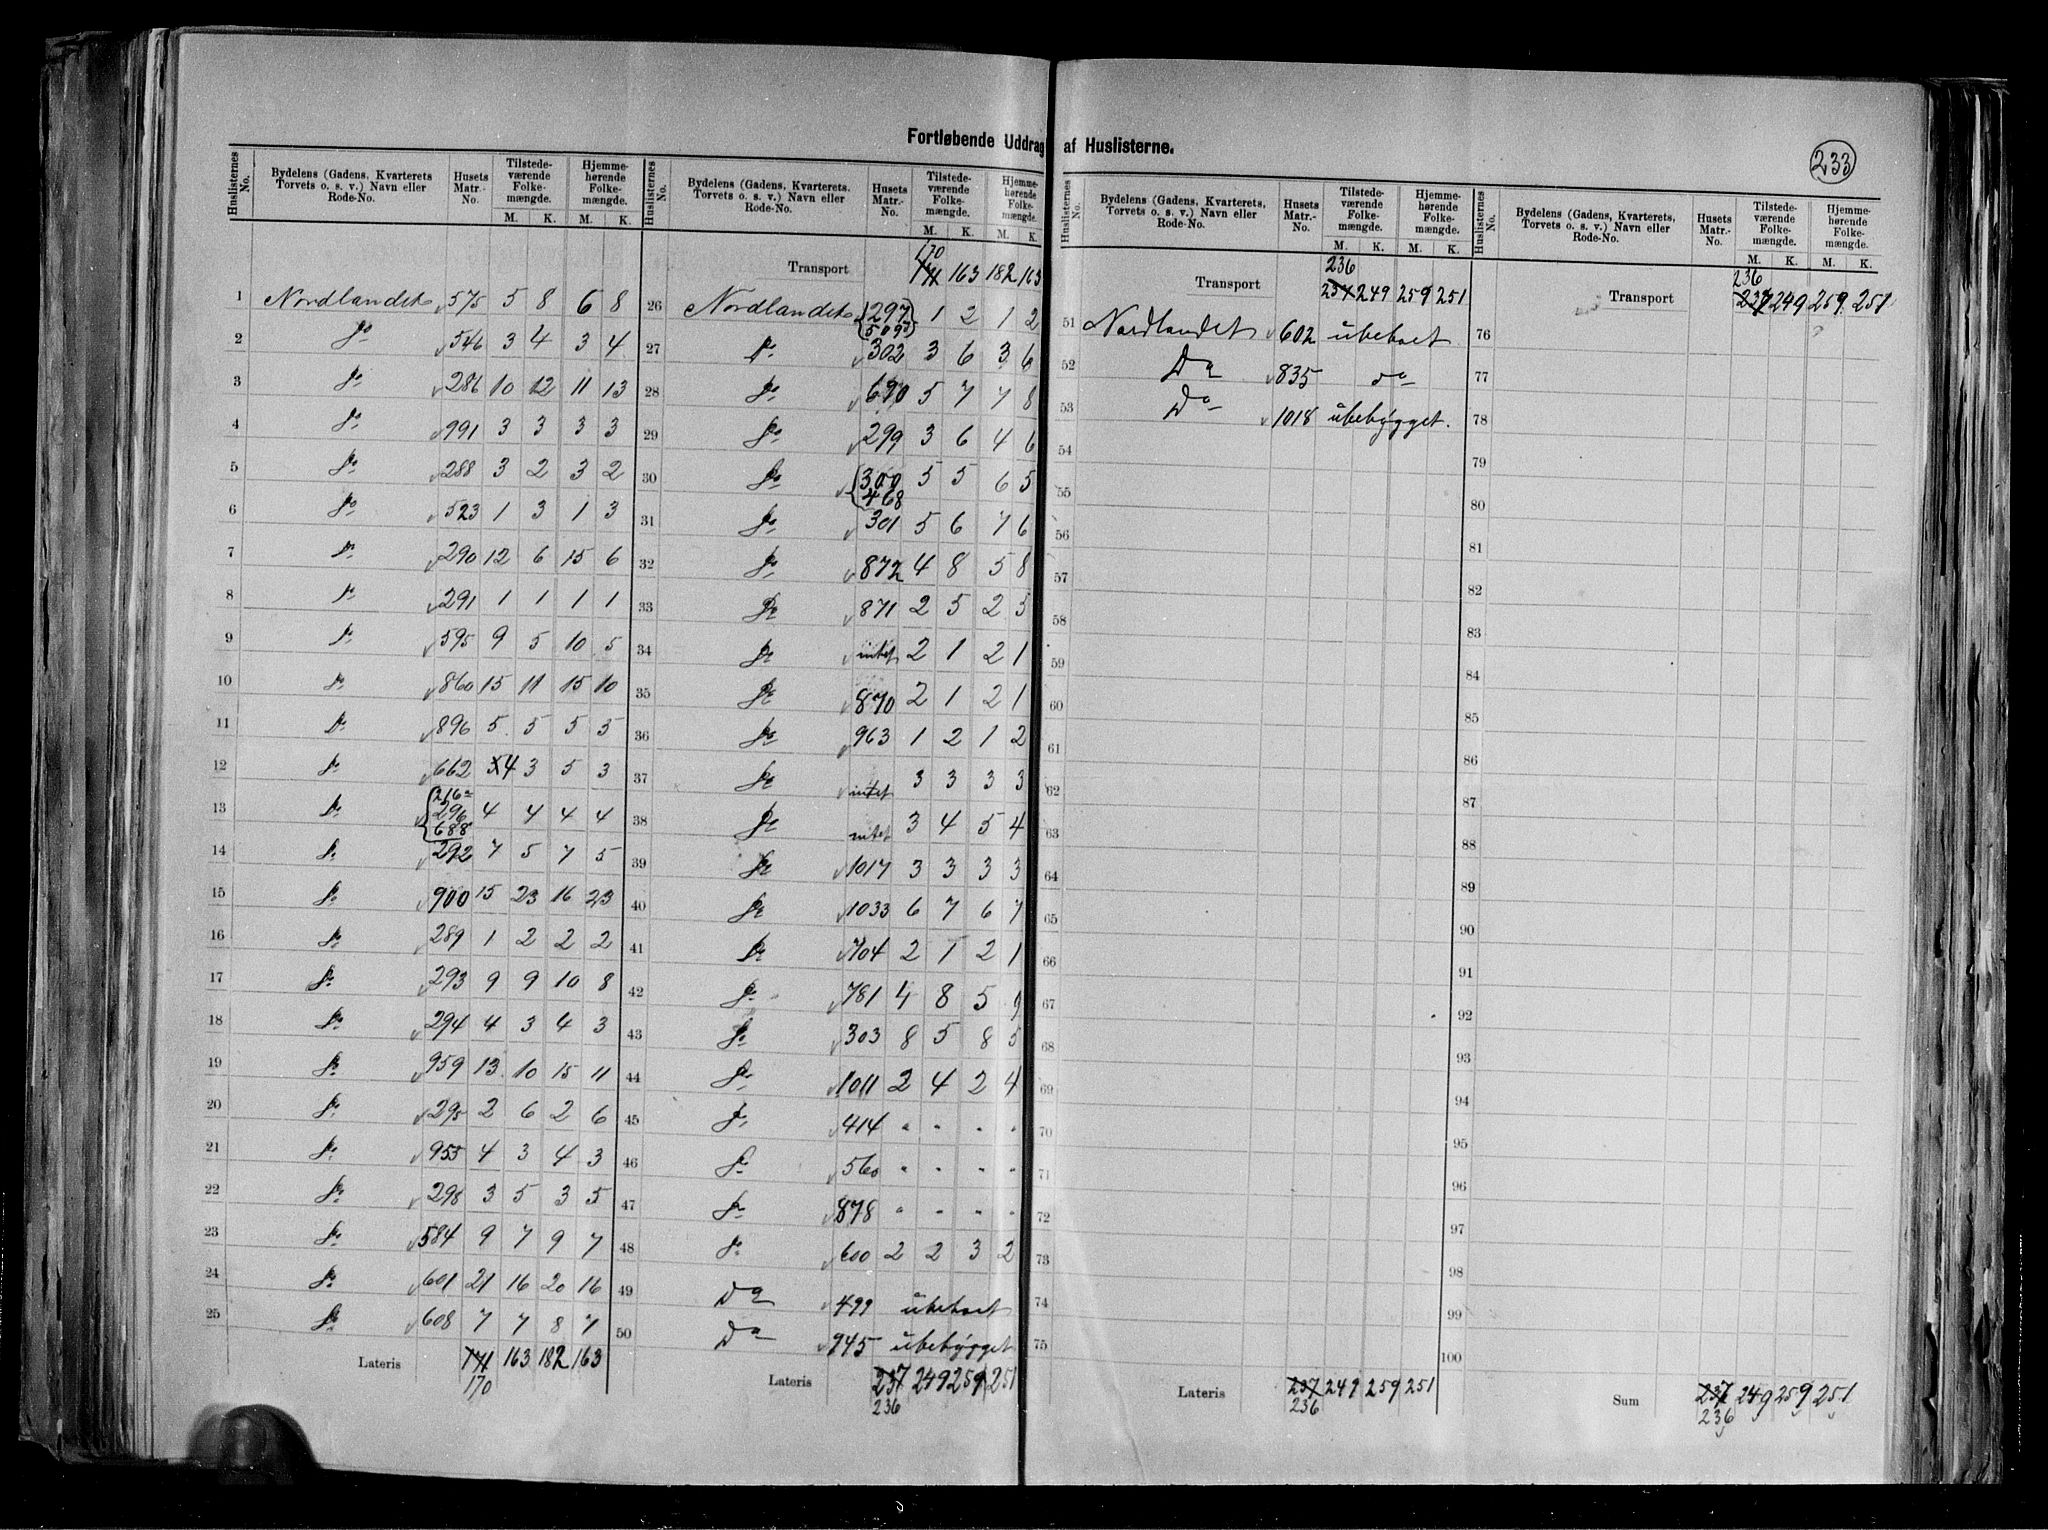 Fortløbende Uddrag af Huslisterne.
233
Huslisternes No. | Bydelens (Gadens, Kvarterets Torvets o. s. v.) Navn eller Rode-No. | Husets Matr.-No. | Tilstedeværende Folkemængde. M. K. | Hjemmehørende Folkemængde. M. K.
1 Nordlandet 575 5 8 6 8
2 Do 546 3 4 3 4
3 Do 286 10 12 11 13
4 Do 991 3 3 3 3
5 Do 288 3 2 3 2
6 Do 523 1 3 1 3
7 Do 290 12 6 15 6
8 Do 291 1 1 1 1
9 Do 595 9 5 10 5
10 Do 860 15 11 15 10
11 Do 896 5 5 5 5
12 Do 662 4 3 5 3
13 Do 216a 296 688 4 4 4 4
14 Do 292 7 5 7 5
15 Do 900 15 23 16 23
16 Do 289 1 2 2 2
17 Do 293 9 9 10 8
18 Do 294 4 3 4 3
19 Do 959 13 10 15 11
20 Do 295 2 6 2 6
21 Do 955 4 3 4 3
22 Do 298 3 5 3 5
23 Do 584 9 7 9 7
24 Do 601 21 16 20 16
25 Do 608 7 7 8 7
Lateris 171 163 182 163
170
Huslisternes No. | Bydelens (Gadens, Kvarterets, Torvets o. s. v.) Navn eller Rode-No. | Husets Matr.-No. | Tilstedeværende Folkemængde. M. K. | Hjemmehørende Folkemængde. M. K.
170
Transport 171 163 182 163
26 Nordlandet 297 509 1 2 1 2
27 Do 302 3 6 3 6
28 Do 690 5 7 7 8
29 Do 299 3 6 4 6
30 Do 300 468 5 5 6 5
31 Do 301 5 6 7 6
32 Do 872 4 8 5 8
33 Do 871 2 5 2 5
34 Do intet 2 1 2 1
35 Do 870 2 1 2 1
36 Do 963 1 2 1 2
37 Do intet 3 3 3 3
38 Do intet 3 4 5 4
39 Do 1017 3 3 3 3
40 Do 1033 6 7 6 7
41 Do 704 2 1 2 1
42 Do 781 4 8 5 9
43 Do 303 8 5 8 5
44 Do 1011 2 4 2 4
45 Do 414 " " " "
46 Do 560 " " " "
47 Do 878 " " " "
48 Do 600 2 2 3 2
49 Do 499 ubeboet
50 Do 945 ubebygget
Lateris 237 249 259 251
236
Huslisternes No. | Bydelens (Gadens, Kvarterets, Torvets o. s. v.) Navn eller Rode-No. | Husets Matr.-No. | Tilstedeværende Folkemængde. M. K. | Hjemmehørende Folkemængde. M. K.
236
Transport 237 249 259 251
51 Nordlandet 602 ubeboet
52 Do 835 do
53 Do 1018 ubebygget.
54
55
56
57
58
59
60
61
62
63
64
65
66
67
68
69
70
71
72
73
74
75
Lateris 237 249 259 251
236
Huslisternes No. | Bydelens (Gadens, Kvarterets, Torvets o. s. v.) Navn eller Rode-No. | Husets Matr.-No. | Tilstedeværende Folkemængde. M. K. | Hjemmehørende Folkemængde. M. K.
236
Transport 237 249 259 251
76
77
78
79
80
81
82
83
84
85
86
87
88
89
90
91
92
93
94
95
96
97
98
99
100
Sum 237 249 259 251
236